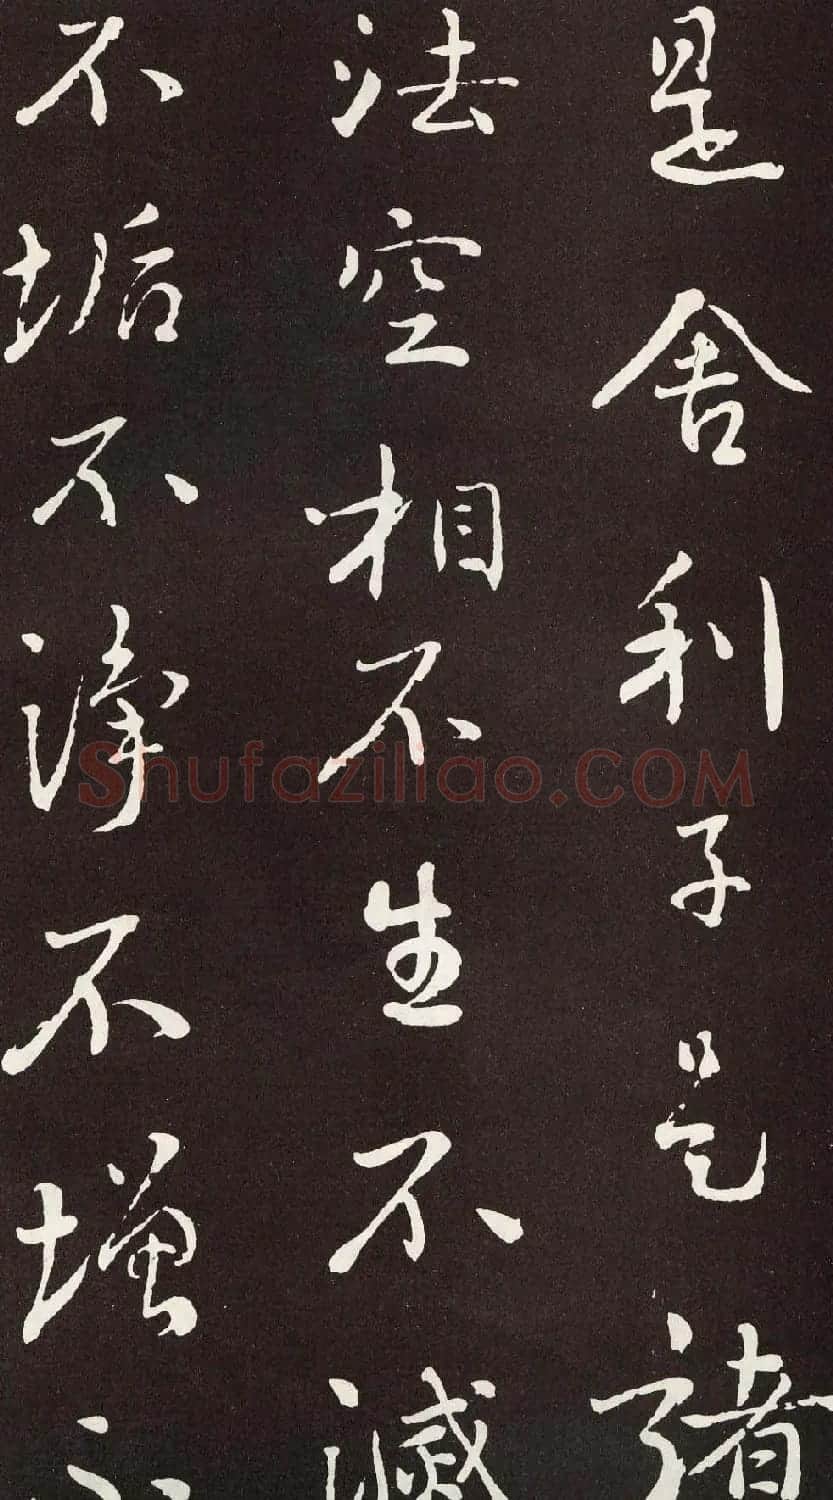 是舍利子是諸
法空相不生不滅
不垢不淨不增不
Shufaziliao.COM